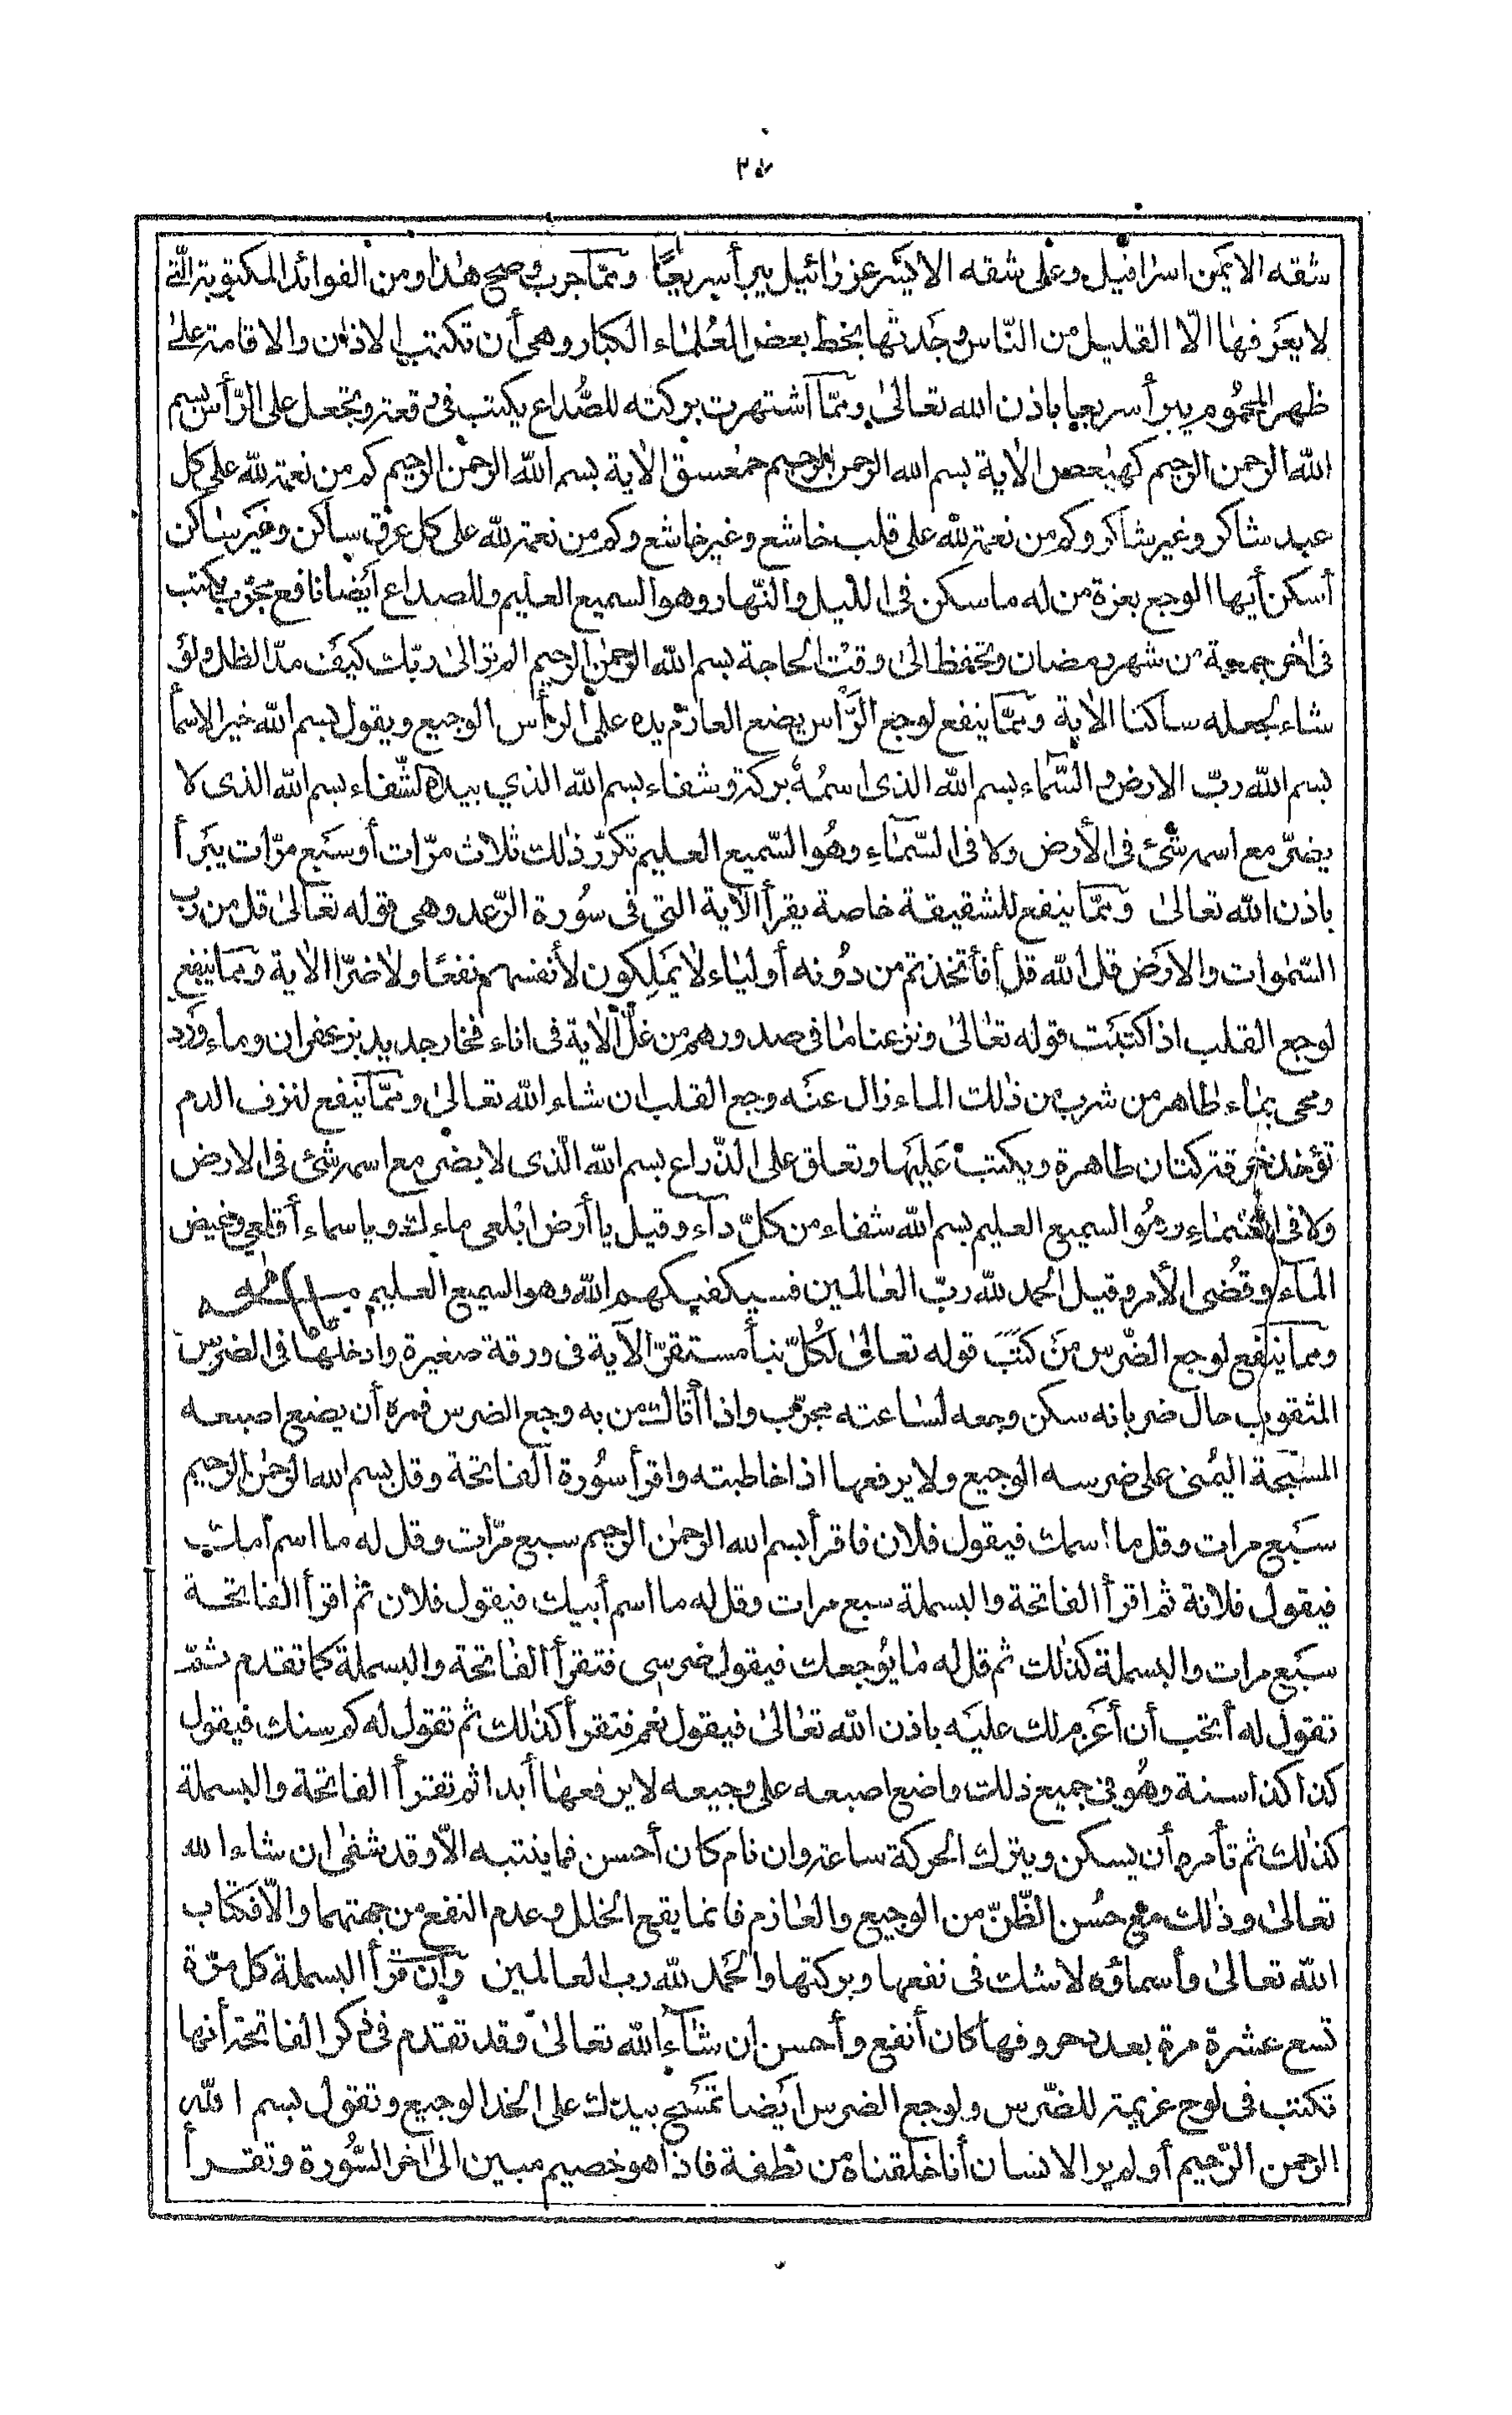 شقه الايمن اسرافيل وعلى شقه الايسر عزرائيل يبرأ سريعًا وممّا جرب وصح هذا ومن الفوائد المكتوبة الّتي
لا يعرفها الّا القليل من النّاس وجدتها بخط بعض العُلماء الكبار وهي أن تكتب الاذان والاقامة على
ظهر المحمُوم يبرأ سريعا باذن الله تعالىٰ وممّا اشتهرت بركته للصُّداع يكتب في رقعة وتجعل على الرّأس بسم
الله الرحمن الرحيم كهيٰعص الاٰية بسم الله الرحمن الرحيم حمٰعسق الاٰية بسم الله الرحمن الرحيم كم من نعمة لله على كل
عبد شاكر وغير شاكر وكم من نعمة لله على قلب خاشع وغير خاشع وكم من نعمة لله على كل عرق ساكن وغير ساكن
أسكن أيها الوجع بعزة من له ما سكن في الليل والنّهار وهو السميع العليم وللصداع أيضا نافع مجرّب يكتب
في اٰخر جمعة من شهر رمضان وتحفظ الىٰ وقت الحاجة بسم الله الرحمٰن الرحيم الم تر الىٰ ربّك كيف مدّ الظل ولو
شاء لجعله ساكنا الاٰية وممّا ينفع لوجع الرّأس يضع العازم يده على الرأس الوجيع ويقول بسم الله خير الاسمأ
بسم الله ربّ الارض والسّماء بسم الله الذى اسمُهُ بركة وشفاء بسم الله الذي بيده الشّفاء بسم الله الذى لا
يضرّ مع اسمه شئ فى الأرض ولا فى السّمٰاءِ وهُو السّميع العليم تكرّر ذٰلك ثلاث مرّات أو سبع مرّات يبرأ
باذن الله تعالىٰ وممّا ينفع للشقيقة خاصة يقرأ الآية التى فى سُورة الرّعد وهى قوله تعالىٰ قل من رب
السّمٰوات والارض قل الله قل أفأتخذتم من دُونه أولياء لا يملِكون لأنفسهم نفعًا ولا ضرّا الاٰية ومما ينفع
لوجع القلب اذا كتبت قوله تعٰالىٰ ونزعنا مٰا فى صدورهم من غلّ الاٰية فى اناء فخار جديد بزعفران وماء وَرْد
ومحى بمٰاء طاهر من شرب من ذٰلك الماء زال عنه وجع القلب ان شاء الله تعالىٰ وممّا ينفع لنزف الدم
تؤخذ خرقة كتان طاهرة ويكتب عليها وتعلق على الذّراع بسم الله الّذى لا يضر مع اسمه شئ فى الارض
ولا فى السّمٰاءِ وهُو السميع العليم بسم الله شفاء من كلّ دآء وقيل يا أرض ابلعى ماءك ويا سماء أقلعي وغيض
المآء وقُضى الأمر وقيل الحمد لله ربّ العٰالمين فسيكفيكهم الله وهو السميع العليم
ومما ينفع لوجع الضّرس من كتب قوله تعالىٰ لكلّ نبأ مستقرّ الآية فى ورقة صغيرة وادخلها فى الضرس
المثقوب حال ضربانه سكن وجعه لساعته مجرّب واذا أتاك من به وجع الضرس فمره أن يضع اصبعه
المسبحة اليُمنى على ضرسه الوجيع ولا يرفعها اذا خاطبته واقرأ سُورة الفاتحة وقل بسم الله الرحمٰن الرحيم
سبع مرات وقل ما اسمك فيقول فلان فاقرأ بسم الله الرحمٰن الرحيم سبع مرّات وقل له ما اسم أمك
فيقول فلانة ثم اقرأ الفاتحة والبسملة سبع مرات وقل له ما اسم أبيك فيقول فلان ثم اقرأ الفاتحة
سبع مرات والبسملة كذٰلك ثم قل له مٰا يُوجعك فيقول ضرسى فتقرأ الفٰاتحة والبسملة كما تقدم ثمّ
تقول له أتحب أن أعزم لك عليه باذن الله تعٰالىٰ فيقول نعم فتقرأ كذلك ثم تقول له كم سنك فيقول
كذا كذا سنة وهُو فى جميع ذلك واضع اصبعه على وجيعه لا يرفعها أبدا ثم تقرأ الفاتحة والبسملة
كذٰلك ثم تأمره أن يسكن ويترك الحركة ساعة وان نام كان أحسن فما ينتبه الّا وقد شفٰى ان شاء الله
تعالىٰ وذٰلك مع حُسن الظّنّ من الوجيع والعٰازم فانما يقع الخلل وعدم النفع من جهتهما والّا فكتاب
الله تعالىٰ وأسماؤه لا شك فى نفعها وبركتها والحمد لله رب العالمين وان قرأ البسملة كل مرّة
تسع عشرة مرة بعدد حروفها كان أنفع وأحسن ان شآء الله تعالىٰ وقد تقدم فى ذكر الفاتحة أنها
تكتب فى لوح عزيمة للضّرس ولوجع الضرس أيضا تمسح بيدك على الخد الوجيع وتقول بسم اللهِ
الرحمن الرّحيم أولم ير الانسان أنا خلقناه من نطفة فاذا هو خصيم مبين الىٰ اٰخر السُّورة وتقرأ